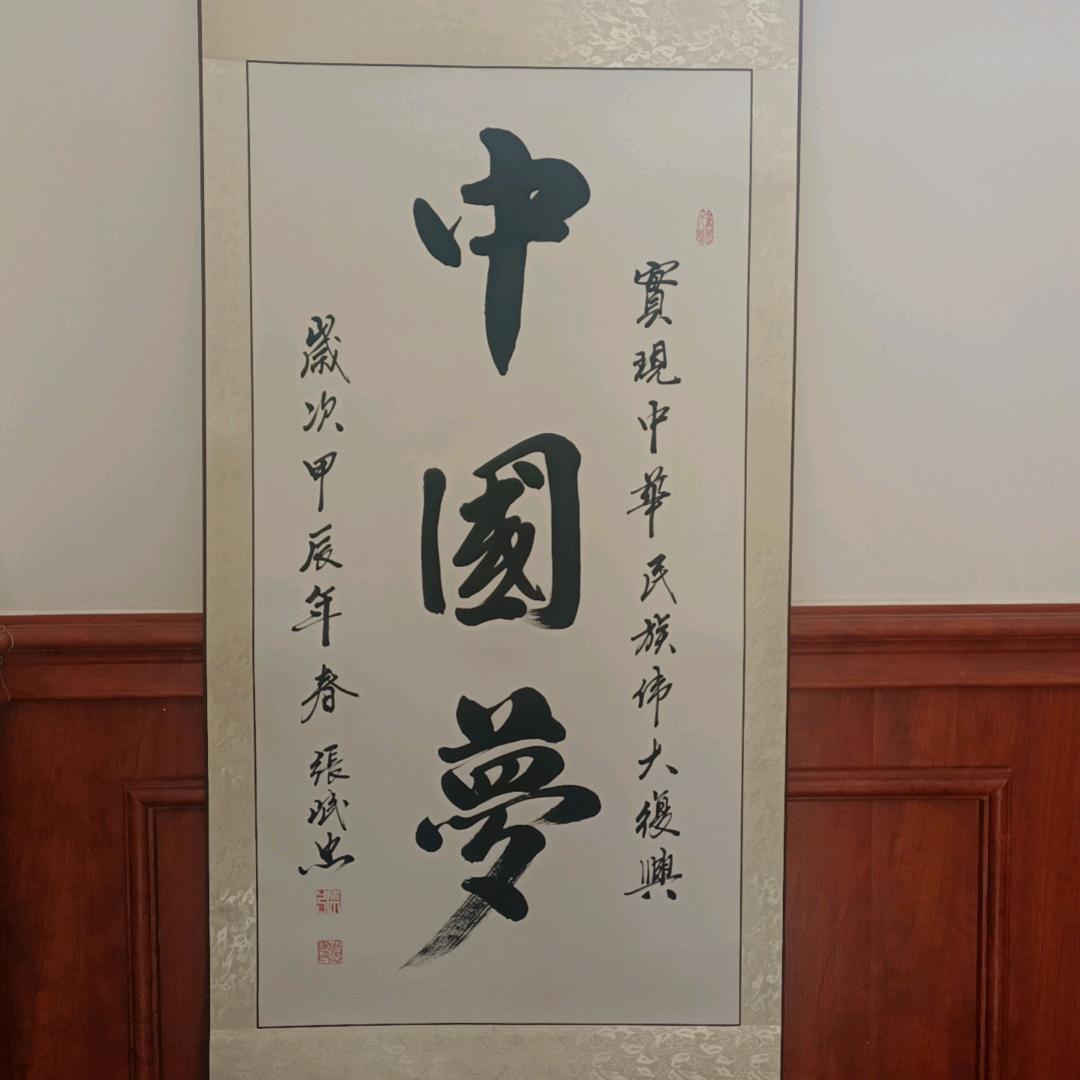 實現中華民族伟大復興
中國夢
歲次甲辰年春 張斌忠